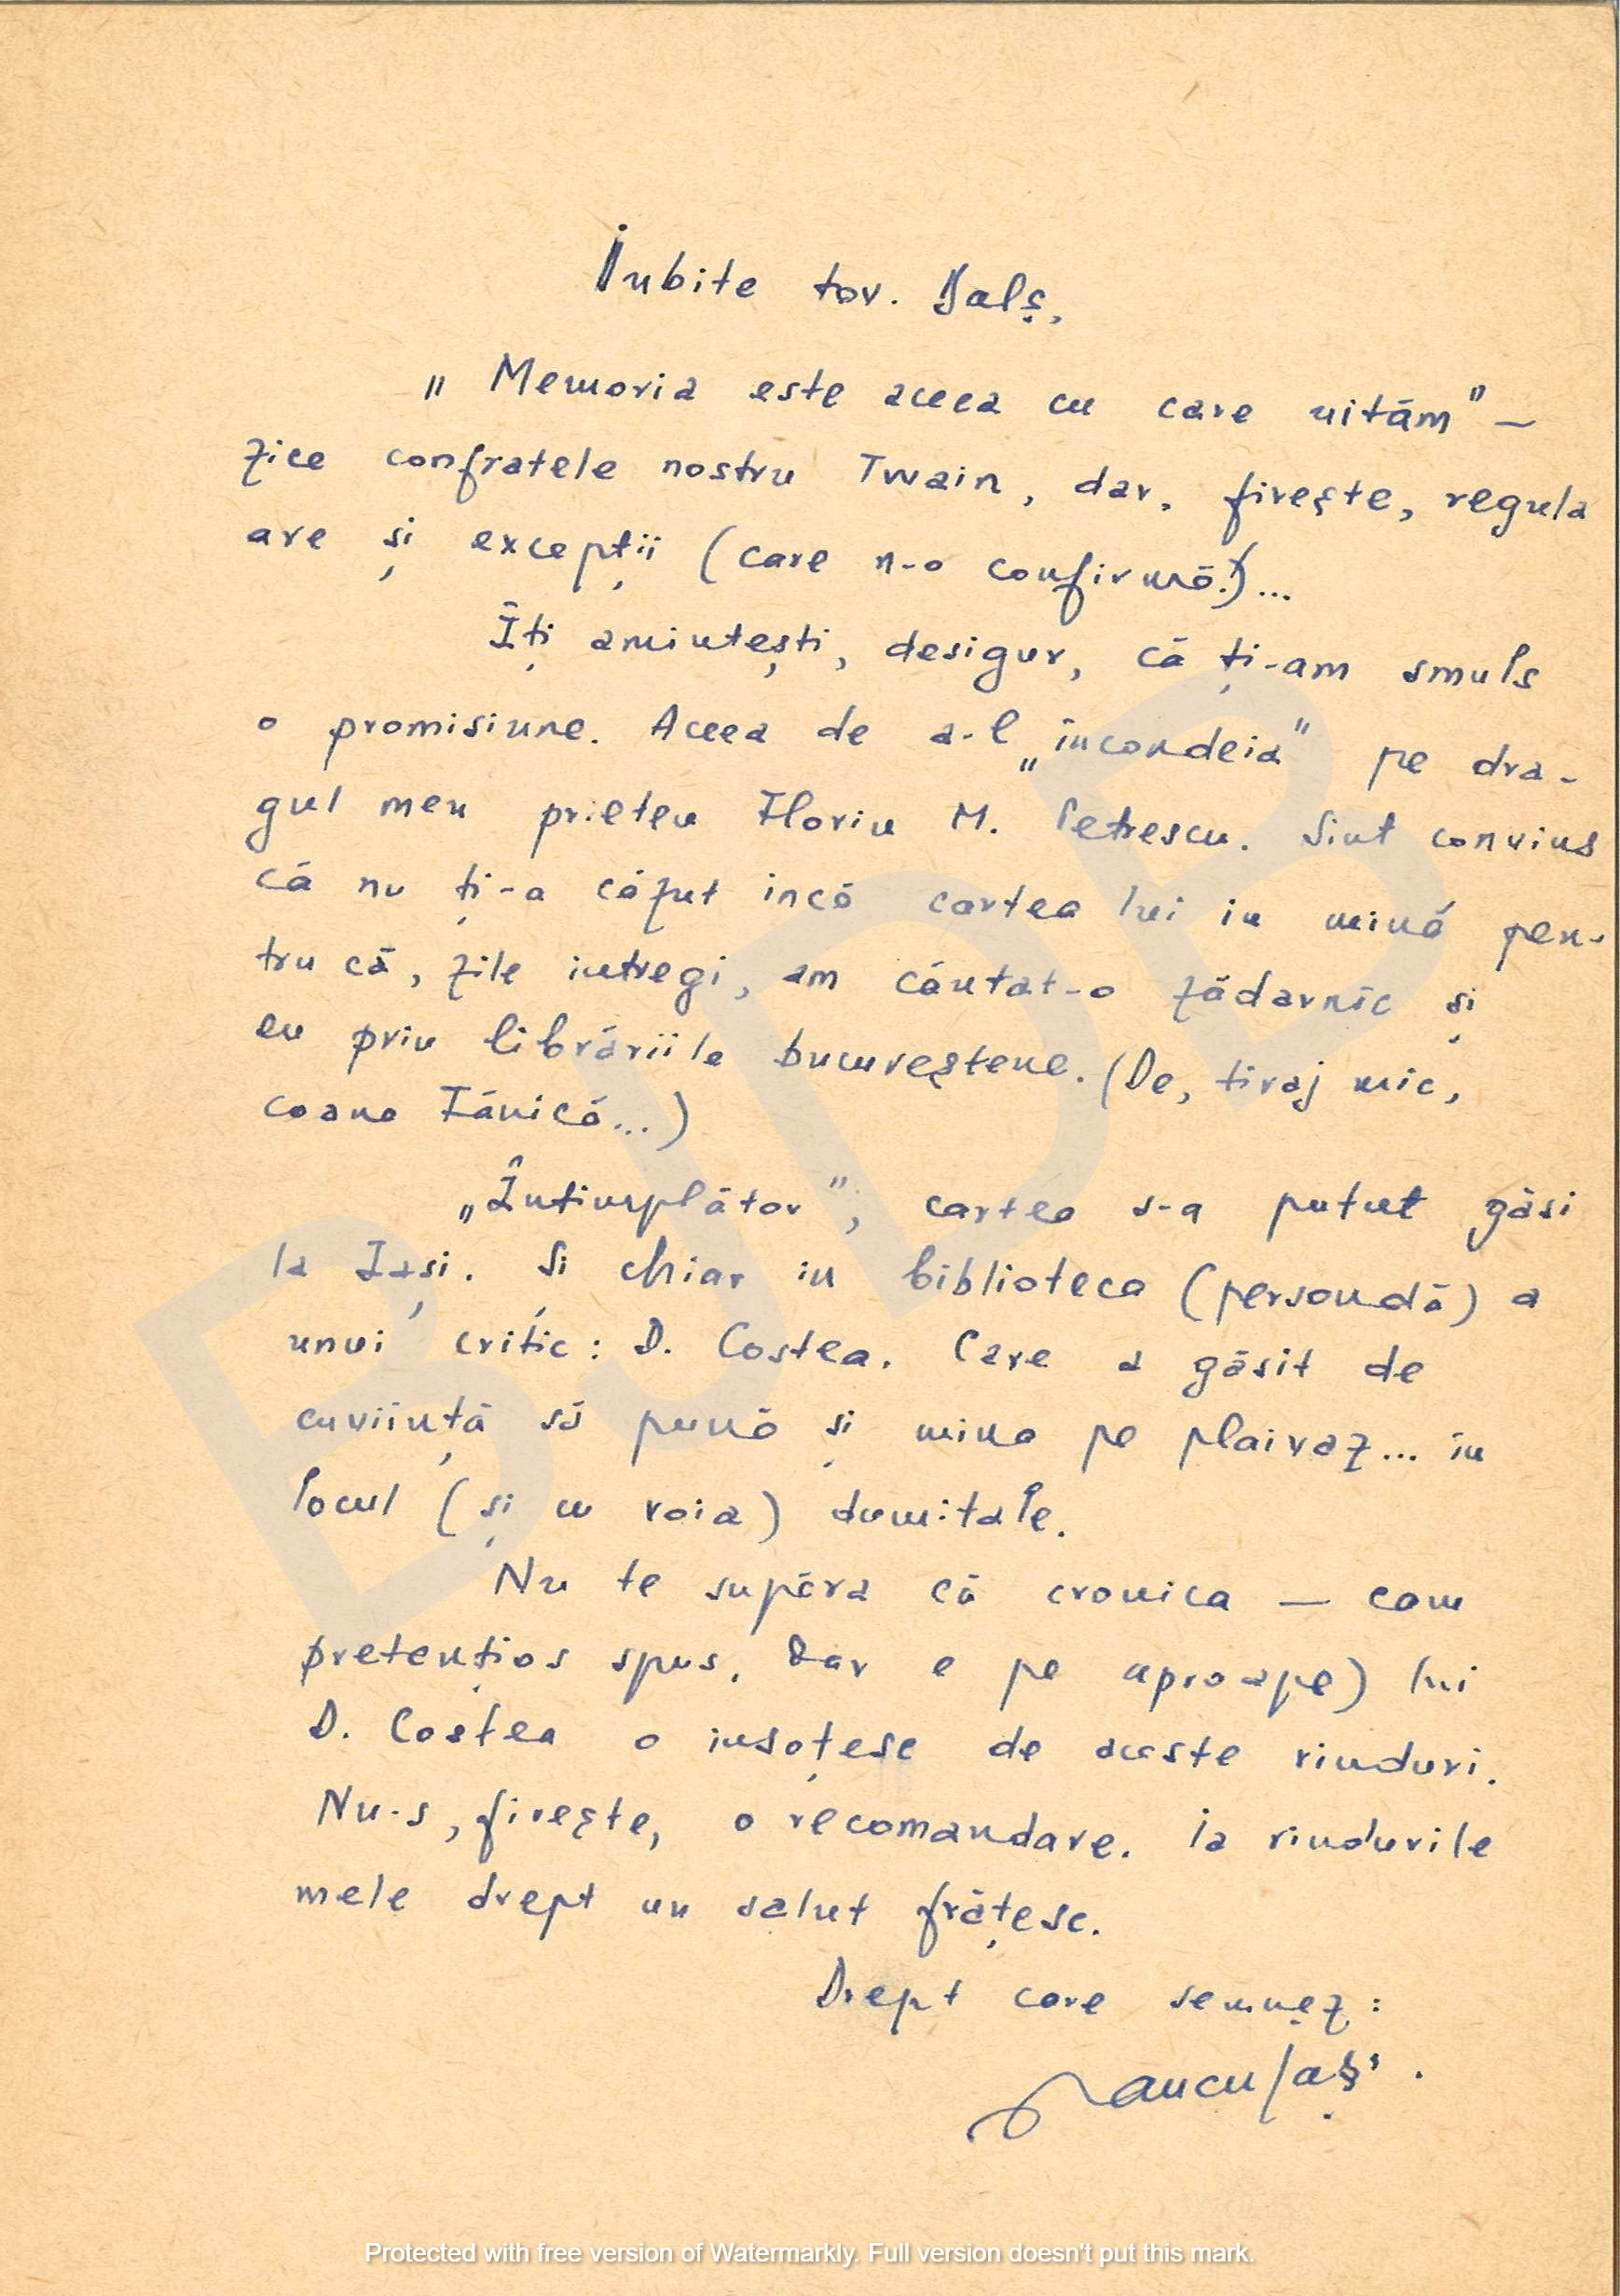 Iubite tov. Balș,
„Memoria este aceea cu care uităm" —
zice confratele nostru Twain, dar, firește, regula
are și excepții (care n-o confirmă!)...
Îți amintești, desigur, că ți-am smuls
o promisiune. Aceea de a-l „incondeia" pe dra-
gul meu prieten Florin M. Petrescu. Sint convins
că nu ți-a căzut incă cartea lui in mină pen-
tru că, zile intregi, am căutat-o zădarnic și
eu prin librăriile bucureștene. (De, tiraj mic,
coane Fănică...)
„Întimplător", cartea s-a putut găsi
la Iași. Și chiar in biblioteca (personală) a
unui critic: D. Costea. Care a găsit de
cuviință să pună și mina pe plaivaz... in
locul (și cu voia) dumitale.
Nu te supăra că cronica — cam
pretențios spus. Dar e pe aproape) lui
D. Costea o insoțesc de aceste rinduri.
Nu-s, firește, o recomandare. Ia rindurile
mele drept un salut frățesc.
Drept care semnez:
BJDB
Protected with free version of Watermarkly. Full version doesn't put this mark.